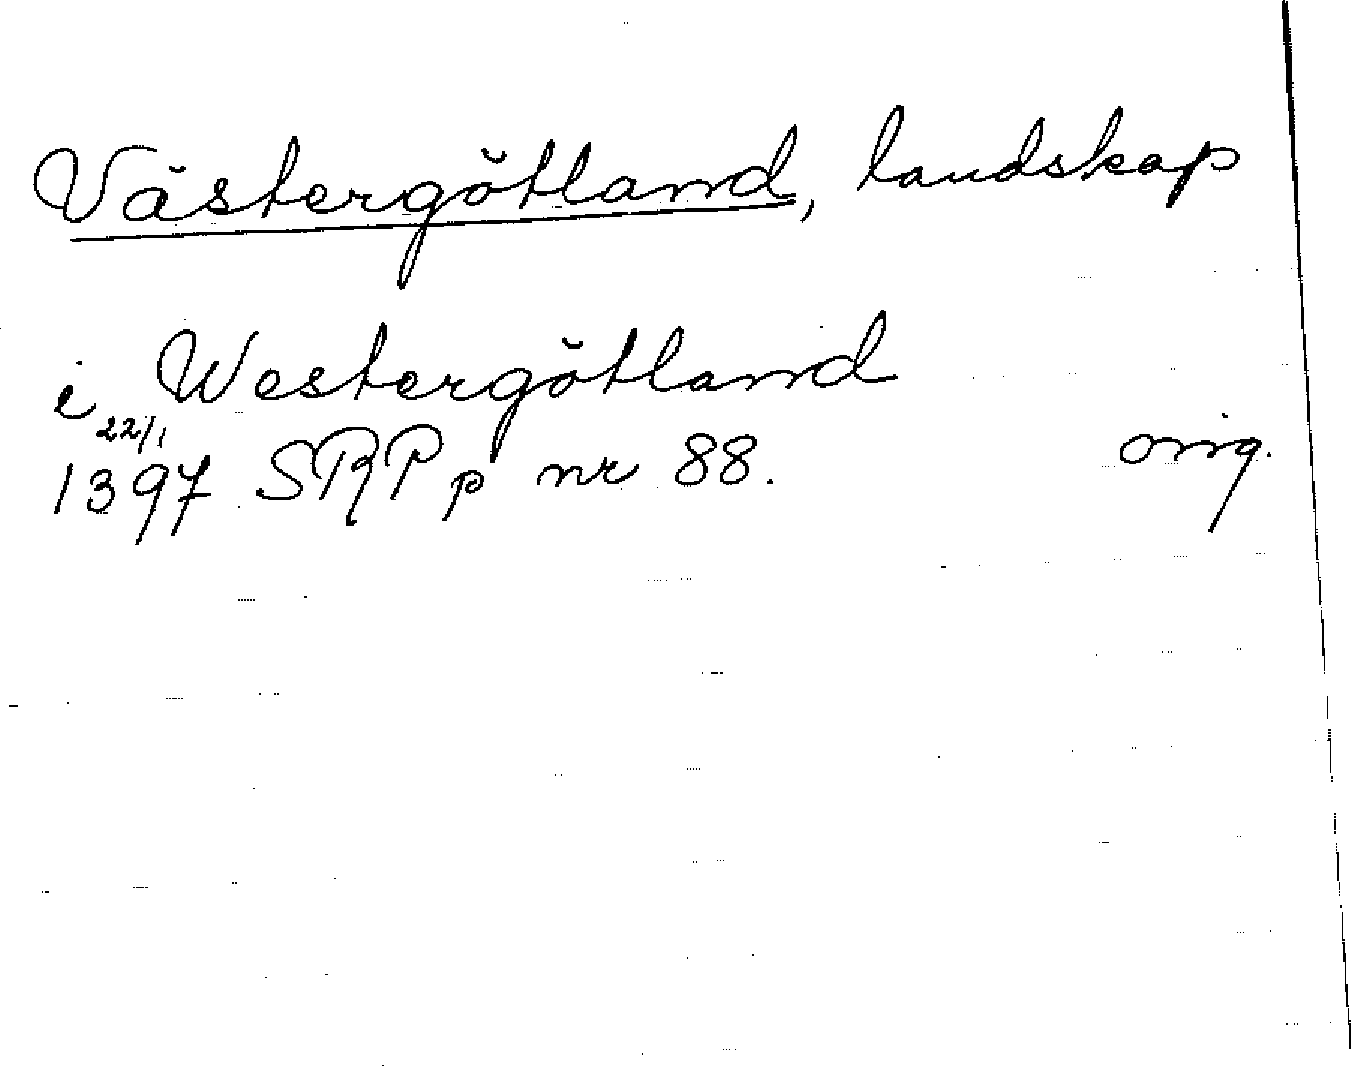 Västergötland, landskap
i Westergötland
22/1
1397 SRPp nr 88. orig.